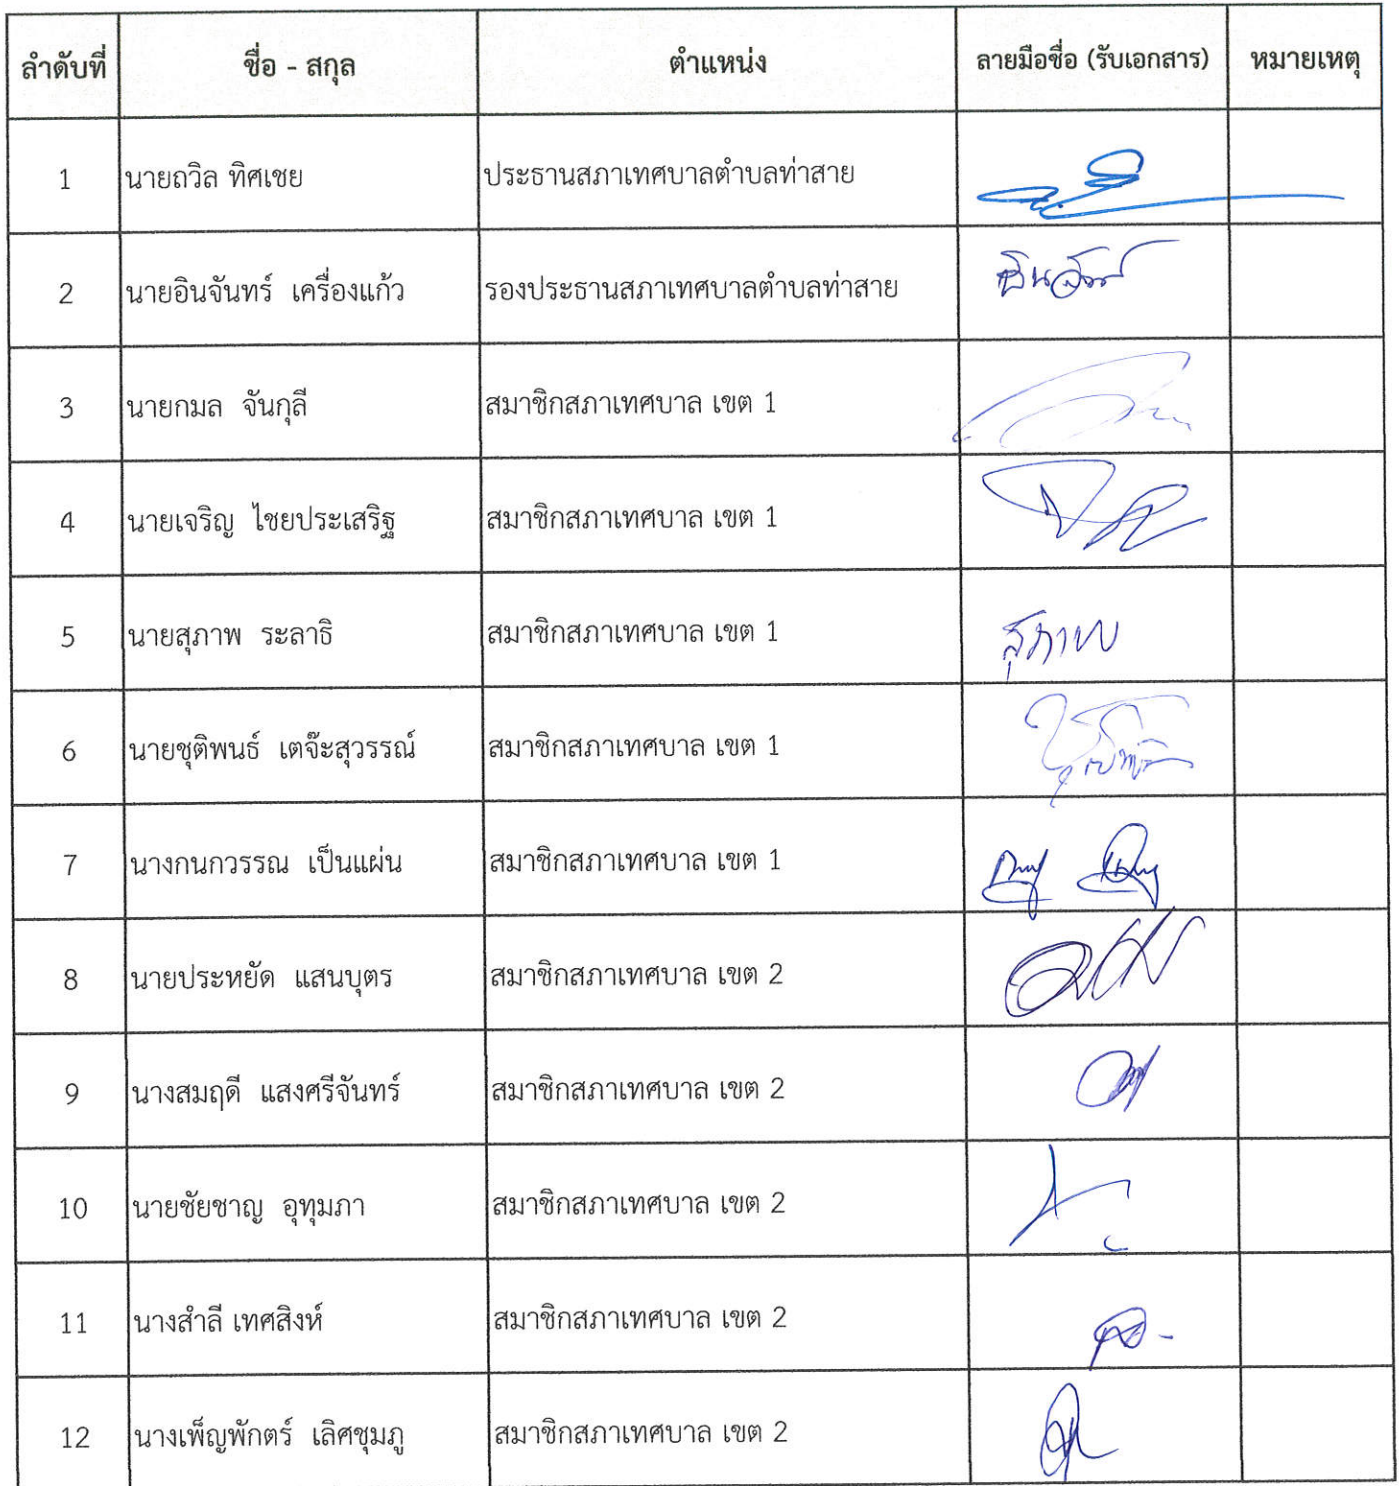 ลำดับที่ ชื่อ - สกุล ตำแหน่ง ลายมือชื่อ (รับเอกสาร) หมายเหตุ
1 นายถวิล ทิศเชย ประธานสภาเทศบาลตำบลท่าสาย
2 นายอินจันทร์ เครื่องแก้ว รองประธานสภาเทศบาลตำบลท่าสาย อินจันทร์
3 นายกมล จันกุลี สมาชิกสภาเทศบาล เขต 1
4 นายเจริญ ไชยประเสริฐ สมาชิกสภาเทศบาล เขต 1
5 นายสุภาพ ระลาธิ สมาชิกสภาเทศบาล เขต 1 สุภาพ
6 นายชุติพนธ์ เตจ๊ะสุวรรณ์ สมาชิกสภาเทศบาล เขต 1
7 นางกนกวรรณ เป็นแผ่น สมาชิกสภาเทศบาล เขต 1
8 นายประหยัด แสนบุตร สมาชิกสภาเทศบาล เขต 2
9 นางสมฤดี แสงศรีจันทร์ สมาชิกสภาเทศบาล เขต 2
10 นายชัยชาญ อุทุมภา สมาชิกสภาเทศบาล เขต 2
11 นางสำลี เทศสิงห์ สมาชิกสภาเทศบาล เขต 2
12 นางเพ็ญพักตร์ เลิศชุมภู สมาชิกสภาเทศบาล เขต 2